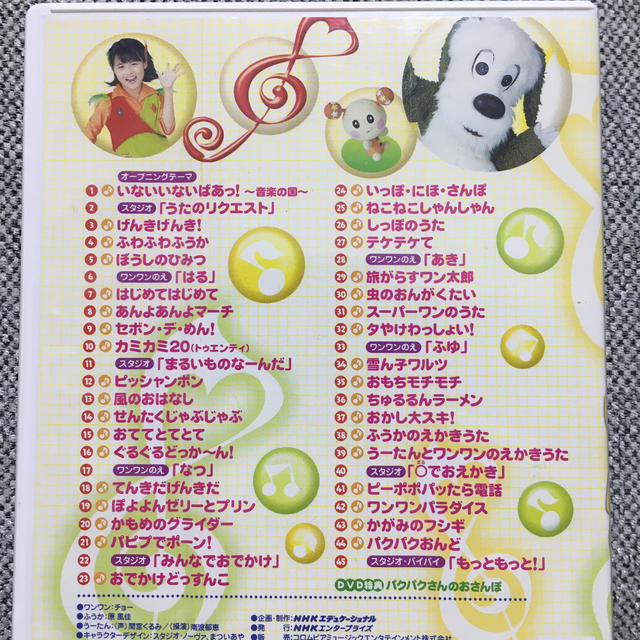 オープニングテーマ
1 いないいないばあっ！～音楽の国～
2 スタジオ「うたのリクエスト」
3 げんきげんき！
4 ふわふわふうか
5 ぼうしのひみつ
6 ワンワンのえ「はる」
7 はじめてはじめて
8 あんよあんよマーチ
9 セボン・デ・めん！
10 カミカミ20(トゥエンティ)
11 スタジオ「まるいものなーんだ」
12 ピッシャンポン
13 風のおはなし
14 せんたくじゃぶじゃぶ
15 おててとてとて
16 ぐるぐるどっか～ん！
17 ワンワンのえ「なつ」
18 てんきだげんきだ
19 ぽよよんゼリーとプリン
20 かもめのグライダー
21 パピプでポーン！
22 スタジオ「みんなでおでかけ」
23 おでかけどっすんこ
24 いっぽ・にほ・さんぽ
25 ねこねこしゃんしゃん
26 しっぽのうた
27 テケテケて
28 ワンワンのえ「あき」
29 旅がらすワン太郎
30 虫のおんがくたい
31 スーパーワンのうた
32 夕やけわっしょい！
33 ワンワンのえ「ふゆ」
34 雪ん子ワルツ
35 おもちモチモチ
36 ちゅるるんラーメン
37 おかし大スキ！
38 ふうかのえかきうた
39 うーたんとワンワンのえかきうた
40 スタジオ「〇でおえかき」
41 ピーポポパッたら電話
42 ワンワンパラダイス
43 かがみのフシギ
44 パクパクおんど
45 スタジオ・バイバイ「もっともっと！」
DVD特典 パクパクさんのおさんぽ
●ワンワン：チョー
●ふうか：原 風佳
●うーたん：(声)間宮くるみ／(操演)南波郁恵
●キャラクターデザイン：スタジオ・ノーヴァ、まついあや
●企画・制作：NHKエデュケーショナル
●発 行：NHKエンタープライズ
●販 売：コロムビアミュージックエンタテインメント株式会社